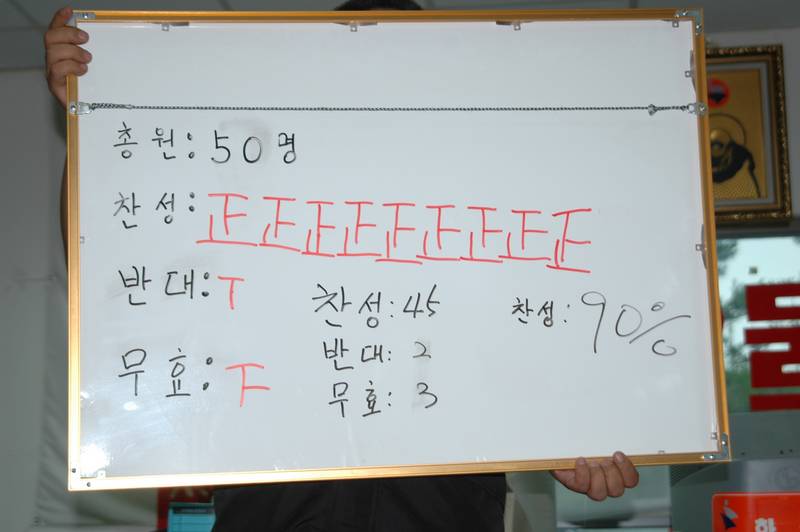 총원: 50명
찬성: 正正正正正正正正正
반대: T
무효: F
찬성: 45
반대: 2
무효: 3
찬성: 90%